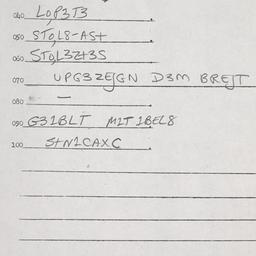 040 LOP3T3
050 STOL8-ASt
060 STOL3Zt3S
070 UPG3ZEJGN D3M BREJT
080 —
090 G31BLT MIT 1BEL8
100 StN1CAXC